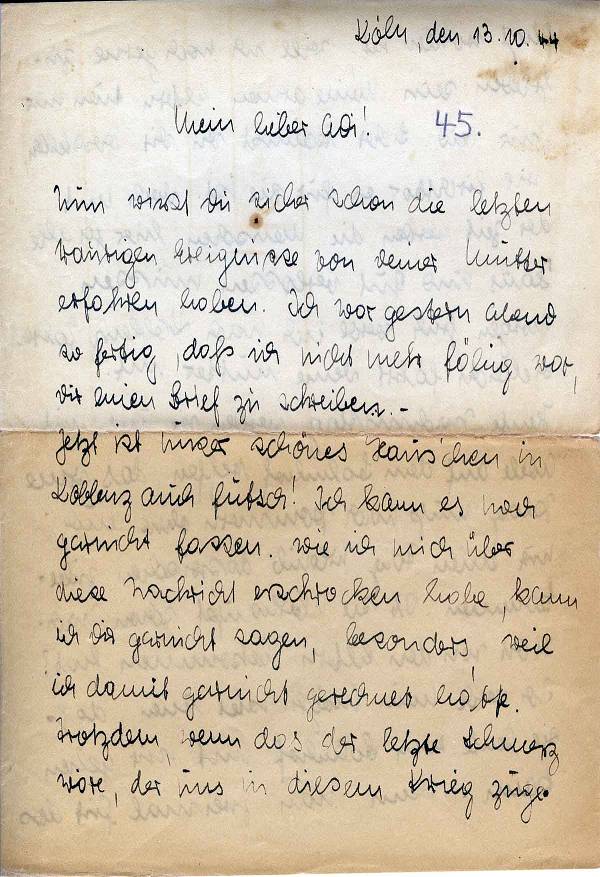 Köln, den 13.10.44
Mein lieber Adi! 45.
Nun wirst du sicher schon die letzten
traurigen Ereignisse von deiner Mutter
erfahren haben. Ich war gestern abend
so fertig, daß ich nicht mehr fähig war,
dir einen Brief zu schreiben.-
Jetzt ist unser schönes Häuschen in
Koblenz auch futsch! Ich kann es noch
garnicht fassen. Wie ich mich über
diese Nachricht erschrocken habe, kann
ich dir garnicht sagen, besonders, weil
ich damit garnicht gerechnet hätte.
Trotzdem, wenn das der letzte Schmerz
wäre, der uns in diesem Krieg zuge-